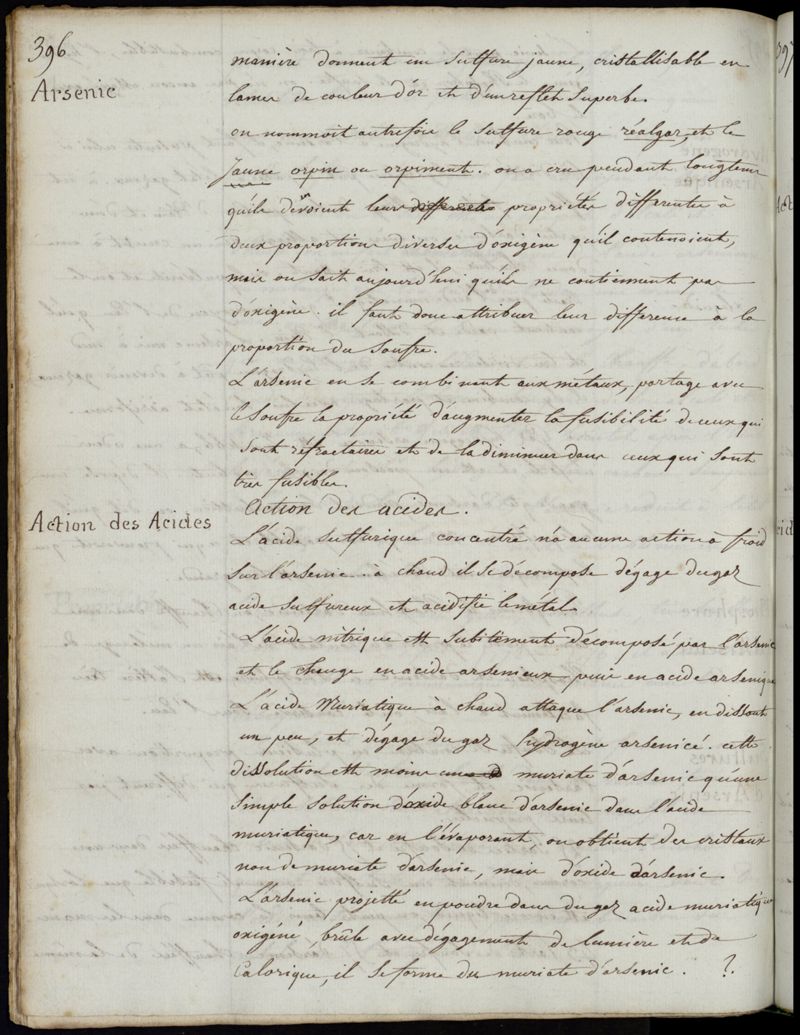 396
Arsenic
manière donnent un Sulfure jaune, cristallisable en
lames de couleur d'or et d'un reflet Superbe.
on nommoit autrefois le Sulfure rouge réalgar, et le
Jaune orpin ou orpiment. on a cru pendant longtems
qu'ils devoient leurs differents proprietés differentes à
deux proportions diverses d'oxigène qu'il contenoient,
mais on sait aujourd'hui qu'ils ne contiennent pas
d'oxigène. il faut donc attribuer leur difference à la
proportion du Soufre.
L'arsenic en se combinant aux métaux, partage avec
le Soufre la propriété d'augmenter la fusibilité de ceux qui
Sont réfractaires et de la diminuer dans ceux qui sont
très fusibles.
Action des Acides
Action des acides.
L'acide Sulfurique concentré n'a aucune action à froid
Sur l'arsenic. à chaud il Se décompose dégage du gaz
acide sulfureux et acidifie le métal.
L'acide nitrique est Subitement décomposé par l'arsenic
et le change en acide arsenieux puis en acide arsenique
L'acide Muriatique à chaud attaque l'arsenic, en dissout
un peu, et dégage du gaz hydrogène arsenicé. cette
dissolution est moins muriate d'arsenic qu'une
Simple Solution d'oxide blanc d'arsenic dans l'acide
muriatique, car en l'évaporant, on obtient des cristaux
non de muriate d'arsenic, mais d'oxide d'arsenic.
L'arsenic projetté en poudre dans du gaz acide muriatique
oxigéné, brûle avec dégagement de lumière et de
Calorique, il se forme du muriate d'arsenic. ?.
397